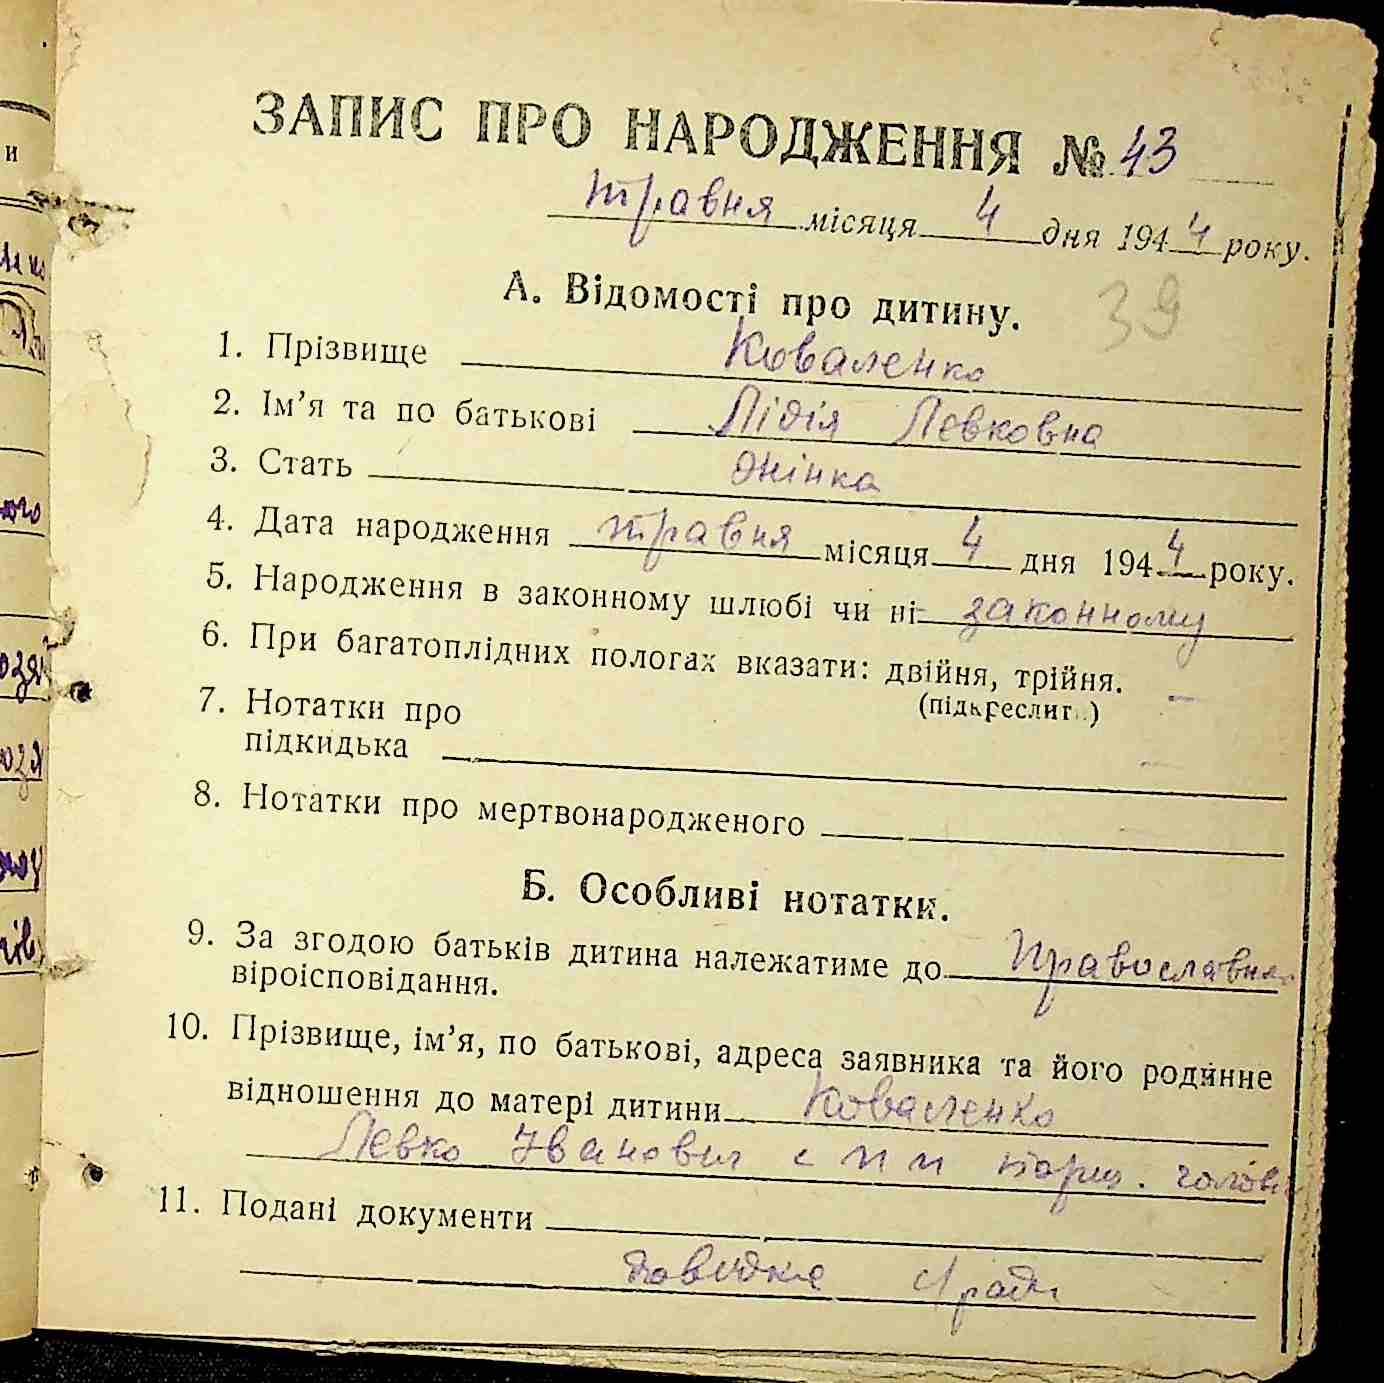 ЗАПИС ПРО НАРОДЖЕННЯ № 43
травня місяця 4 дня 1944 року.
39
А. Відомості про дитину.
1. Прізвище Коваленко
2. Ім'я та по батькові Лідія Левковна
3. Стать жінка
4. Дата народження травня місяця 4 дня 1944 року.
5. Народження в законному шлюбі чи ні законному
6. При багатоплідних пологах вказати: двійня, трійня. —
(підкреслит.)
7. Нотатки про
підкидька —
8. Нотатки про мертвонародженого
Б. Особливі нотатки.
9. За згодою батьків дитина належатиме до Православне
віроісповідання.
10. Прізвище, ім'я, по батькові, адреса заявника та його родинне
відношення до матері дитини Коваленко
Левко Іванович с
11. Подані документи
довидка с/ради